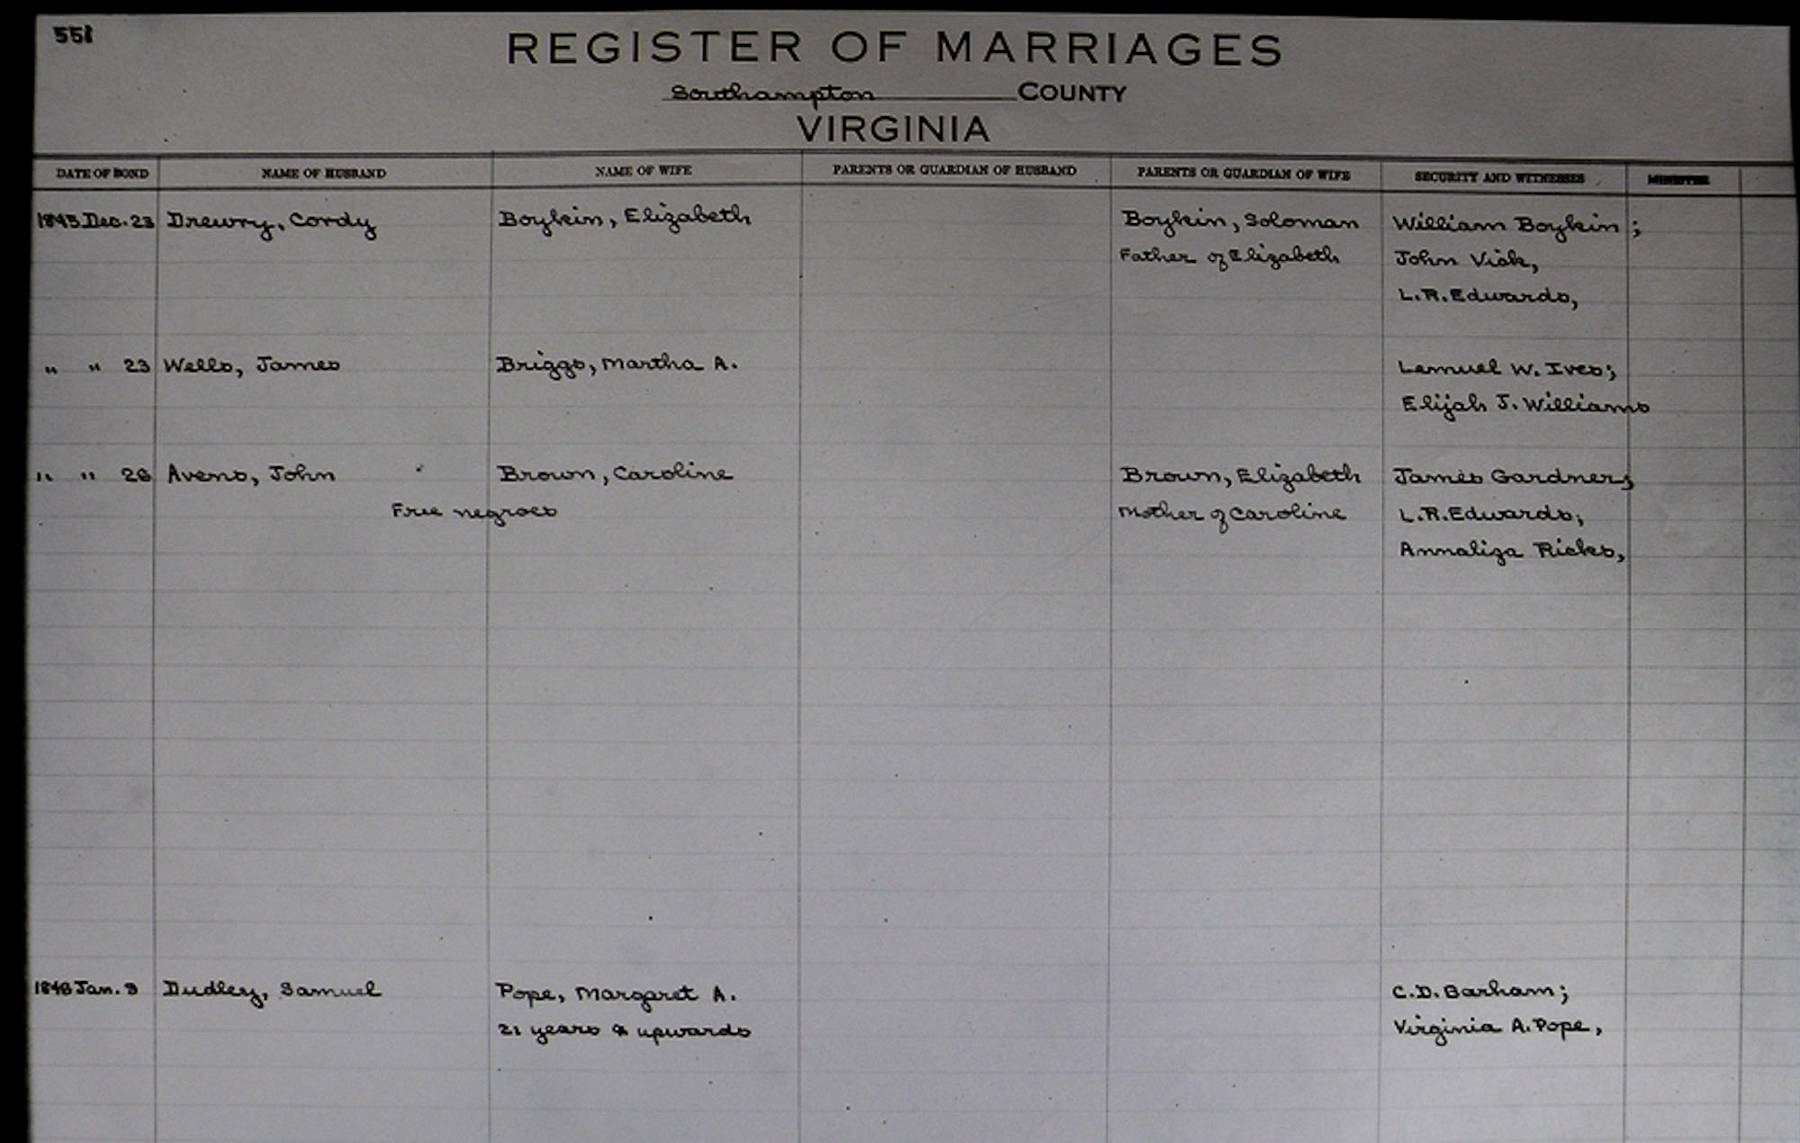 551
REGISTER OF MARRIAGES
Southampton COUNTY
VIRGINIA
DATE OF BOND NAME OF HUSBAND NAME OF WIFE PARENTS OR GUARDIAN OF HUSBAND PARENTS OR GUARDIAN OF WIFE SECURITY AND WITNESSES MINISTER
1845 Dec. 23 Drewry, Cordy Boykin, Elizabeth Boykin, Soloman William Boykin;
Father of Elizabeth John Vick,
L.R. Edwards,
" " 23 Wells, James Briggs, Martha A. Lemuel W. Ives;
Elijah J. Williams
" " 26 Avens, John Brown, Caroline Brown, Elizabeth James Gardner;
Free negroes Mother of Caroline L.R. Edwards;
Annaliza Ricks,
1846 Jan. 9 Dudley, Samuel Pope, Margaret A. C.D. Barham;
21 years & upwards Virginia A. Pope,